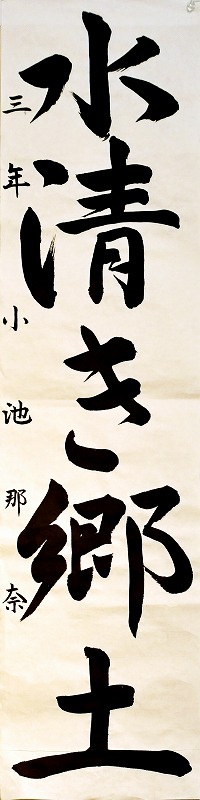 水清き郷土
三年小池那奈